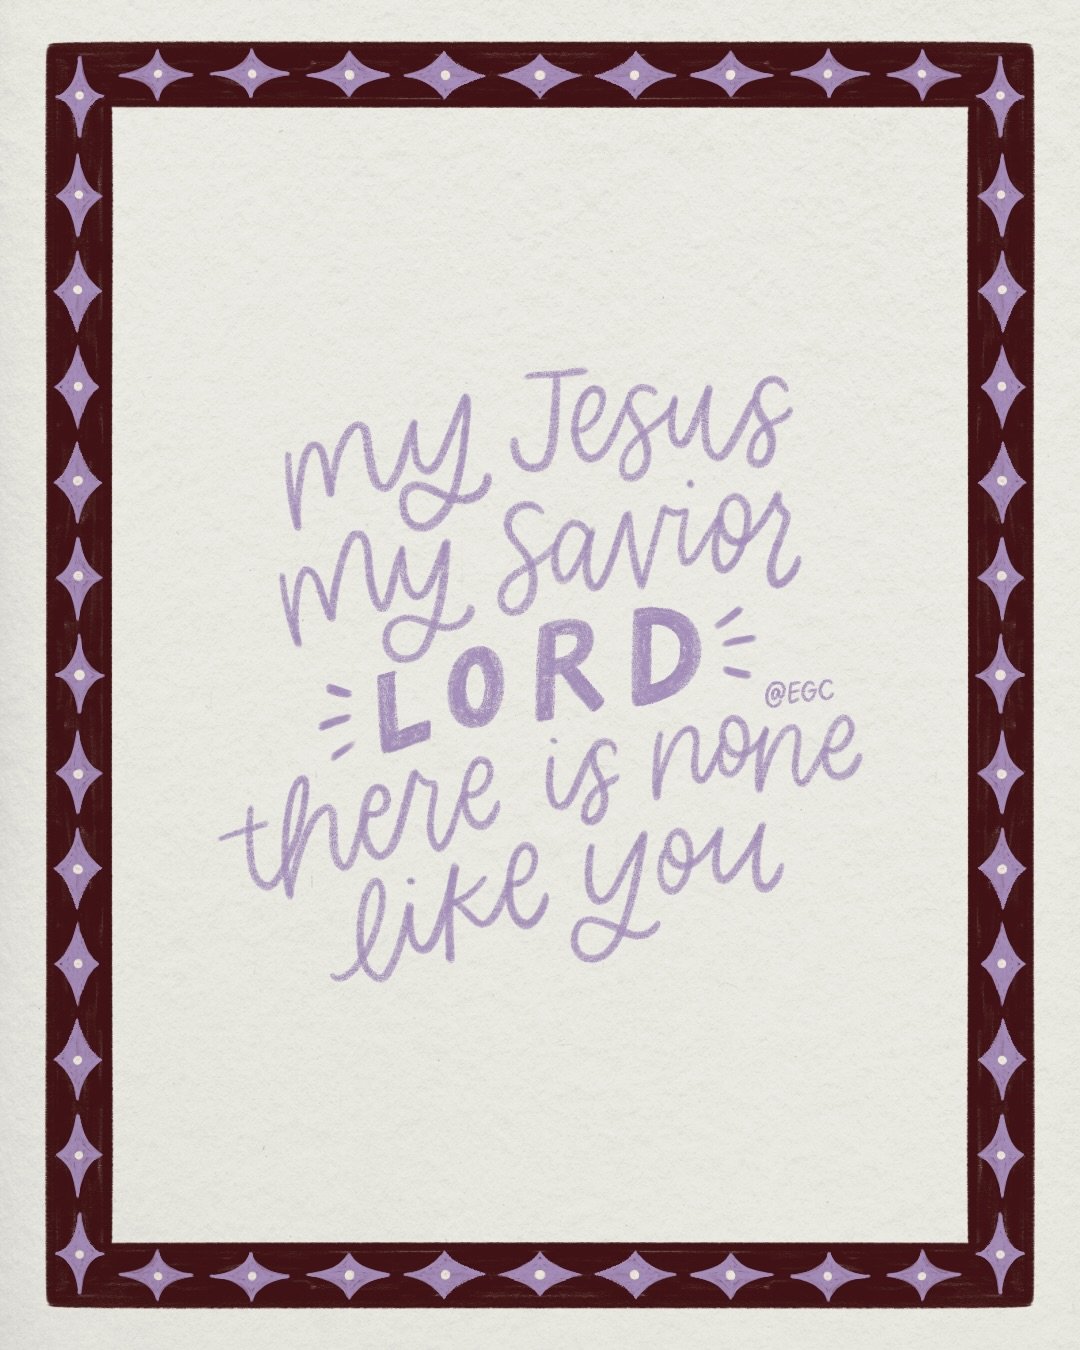 my Jesus
my savior
LORD
@EGC
there is none
like you